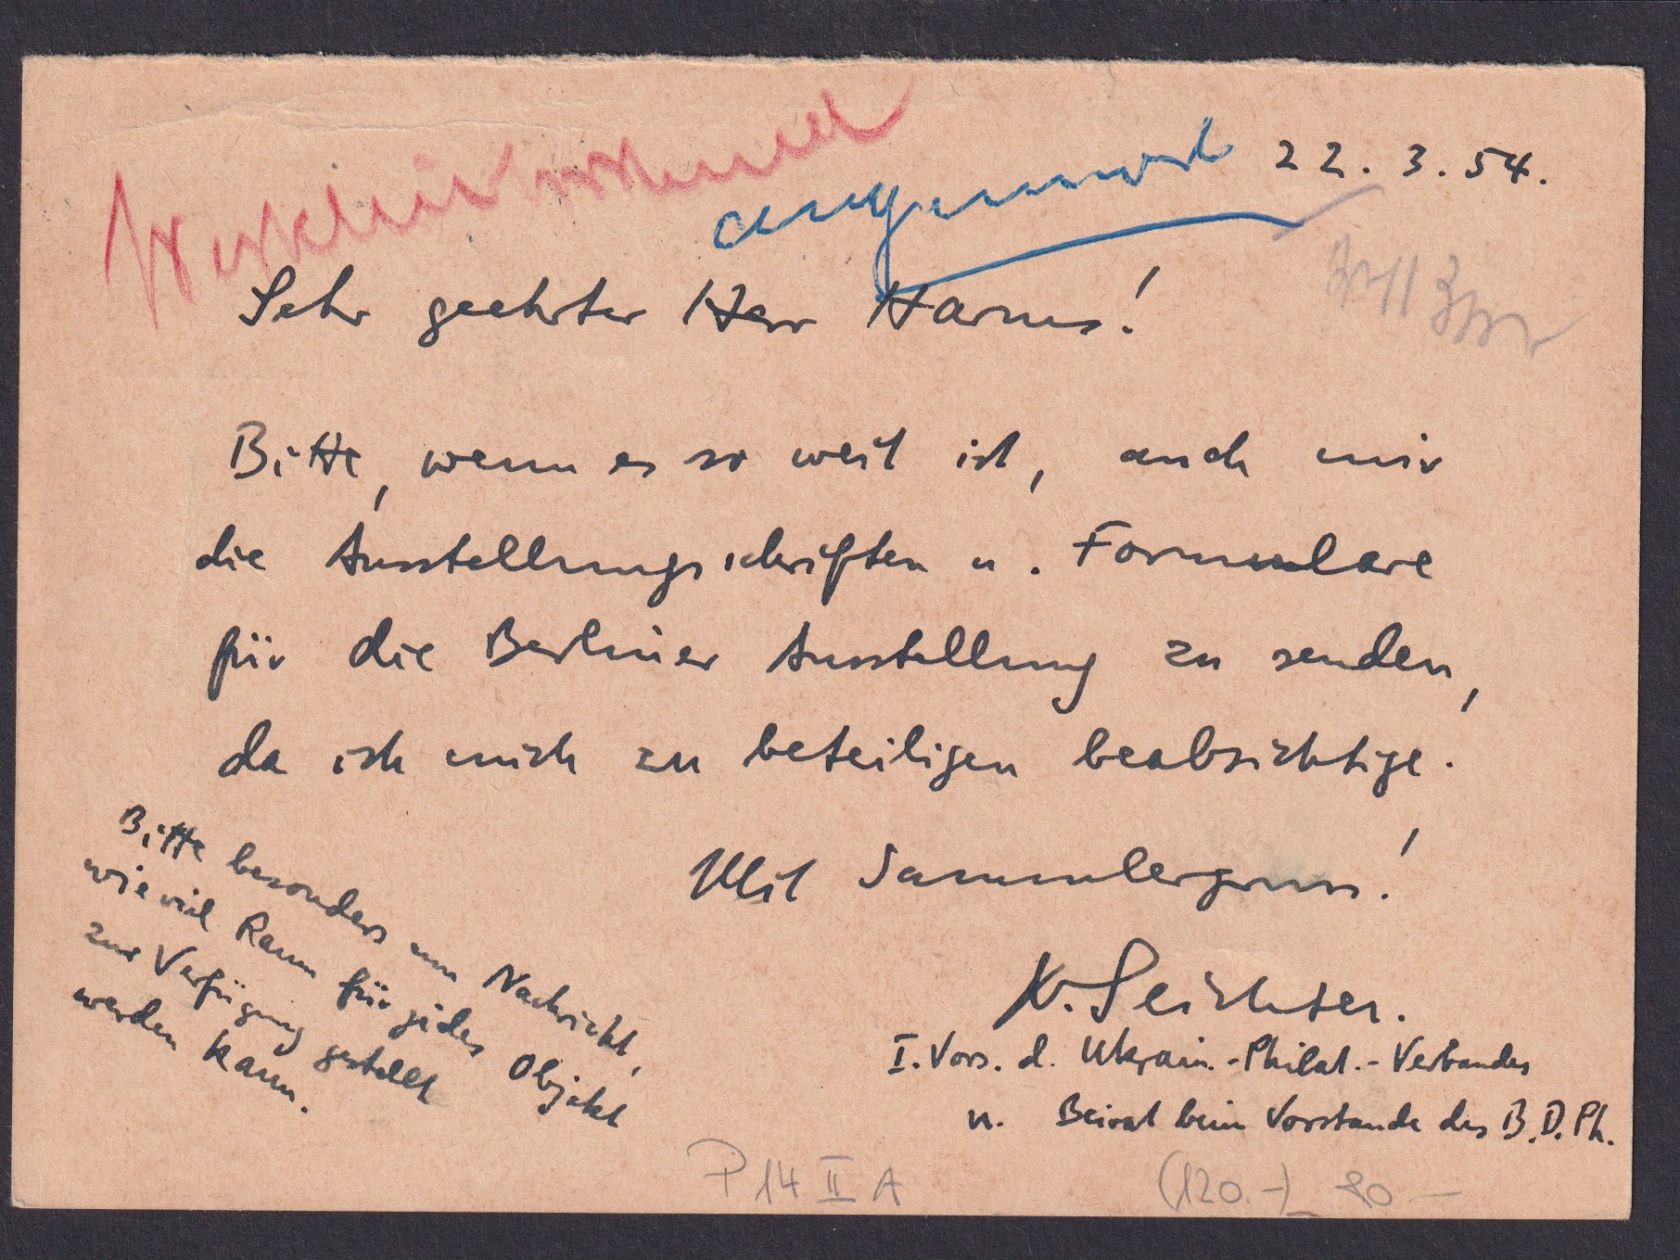 22.3.54.
Sehr geehrter Herr Harms!
Bitte, wenn es so weit ist, auch mir
die Ausstellungsschriften u. Formulare
für die Berliner Ausstellung zu senden,
da ich mich zu beteiligen beabsichtige.
Mit Sammlergruss!
Bitte besonders um Nachricht,
wie viel Raum für jedes Objekt
zur Verfügung gestellt
werden kann.
I. Vors. d. Ukrain.-Philat.-Verbandes
u. Beirat beim Vorstande des B.D.Ph.
P 14 II A
(120.-) 80 -